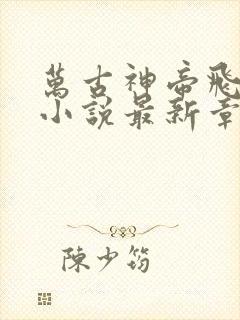 萬古神帝飛
小說最新章
陳少筠